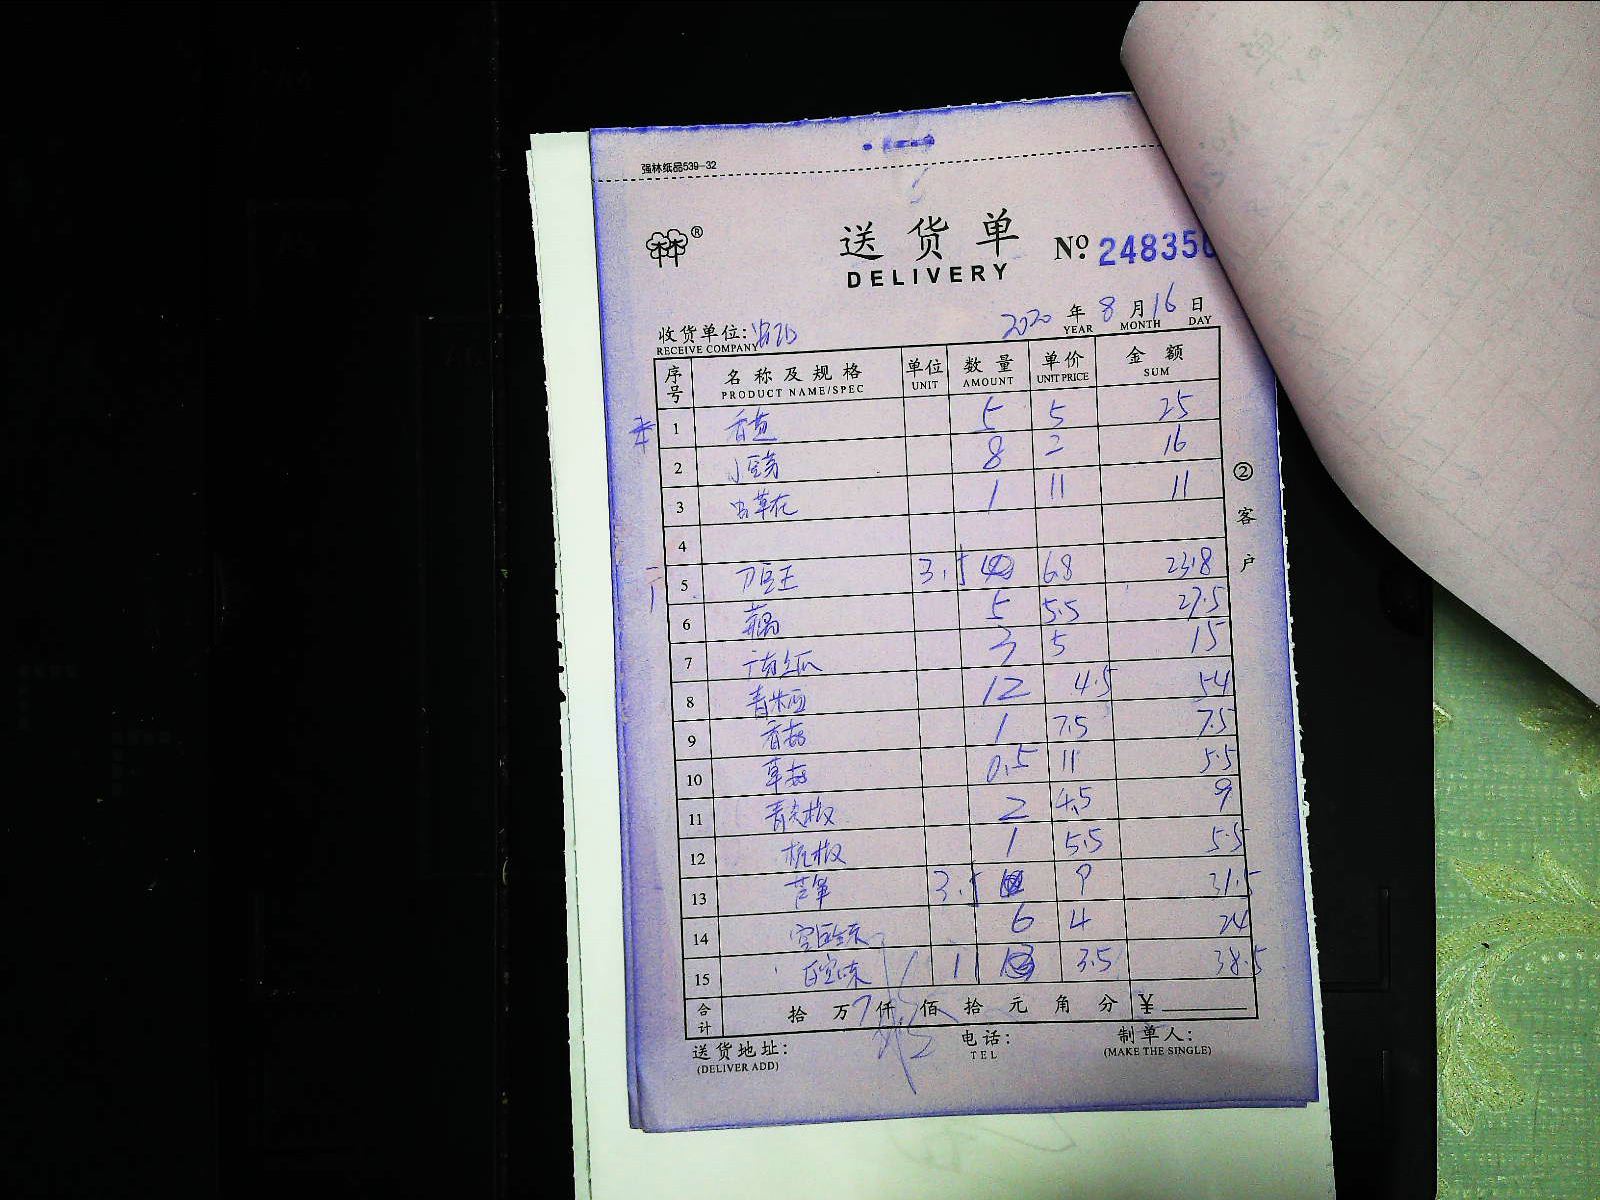 强林纸品539-32
®
送货单
DELIVERY
No. 248350
2020 年 8 月 16 日
YEAR MONTH DAY
收货单位:
RECEIVE COMPANY
序号 名称及规格 单位 数量 单价 金额
PRODUCT NAME/SPEC UNIT AMOUNT UNIT PRICE SUM
1 5 5 25
2 8 2 16
3 虫草花 1 11 11
4
5 3.5 6.8 23.8
6 藕 5 5.5 27.5
7 3 5 15
8 12 4.5 54
9 香菇 1 7.5 7.5
10 草菇 0.5 11 5.5
11 青尖椒 2 4.5 9
12 杭椒 1 5.5 5.5
13 芦笋 3.5 9 31.5
14 6 4 24
15 11 3.5 38.5
合计 拾 万 仟 佰 拾 元 角 分 ¥
送货地址: 电话: 制单人:
(DELIVER ADD) TEL (MAKE THE SINGLE)
② 客户